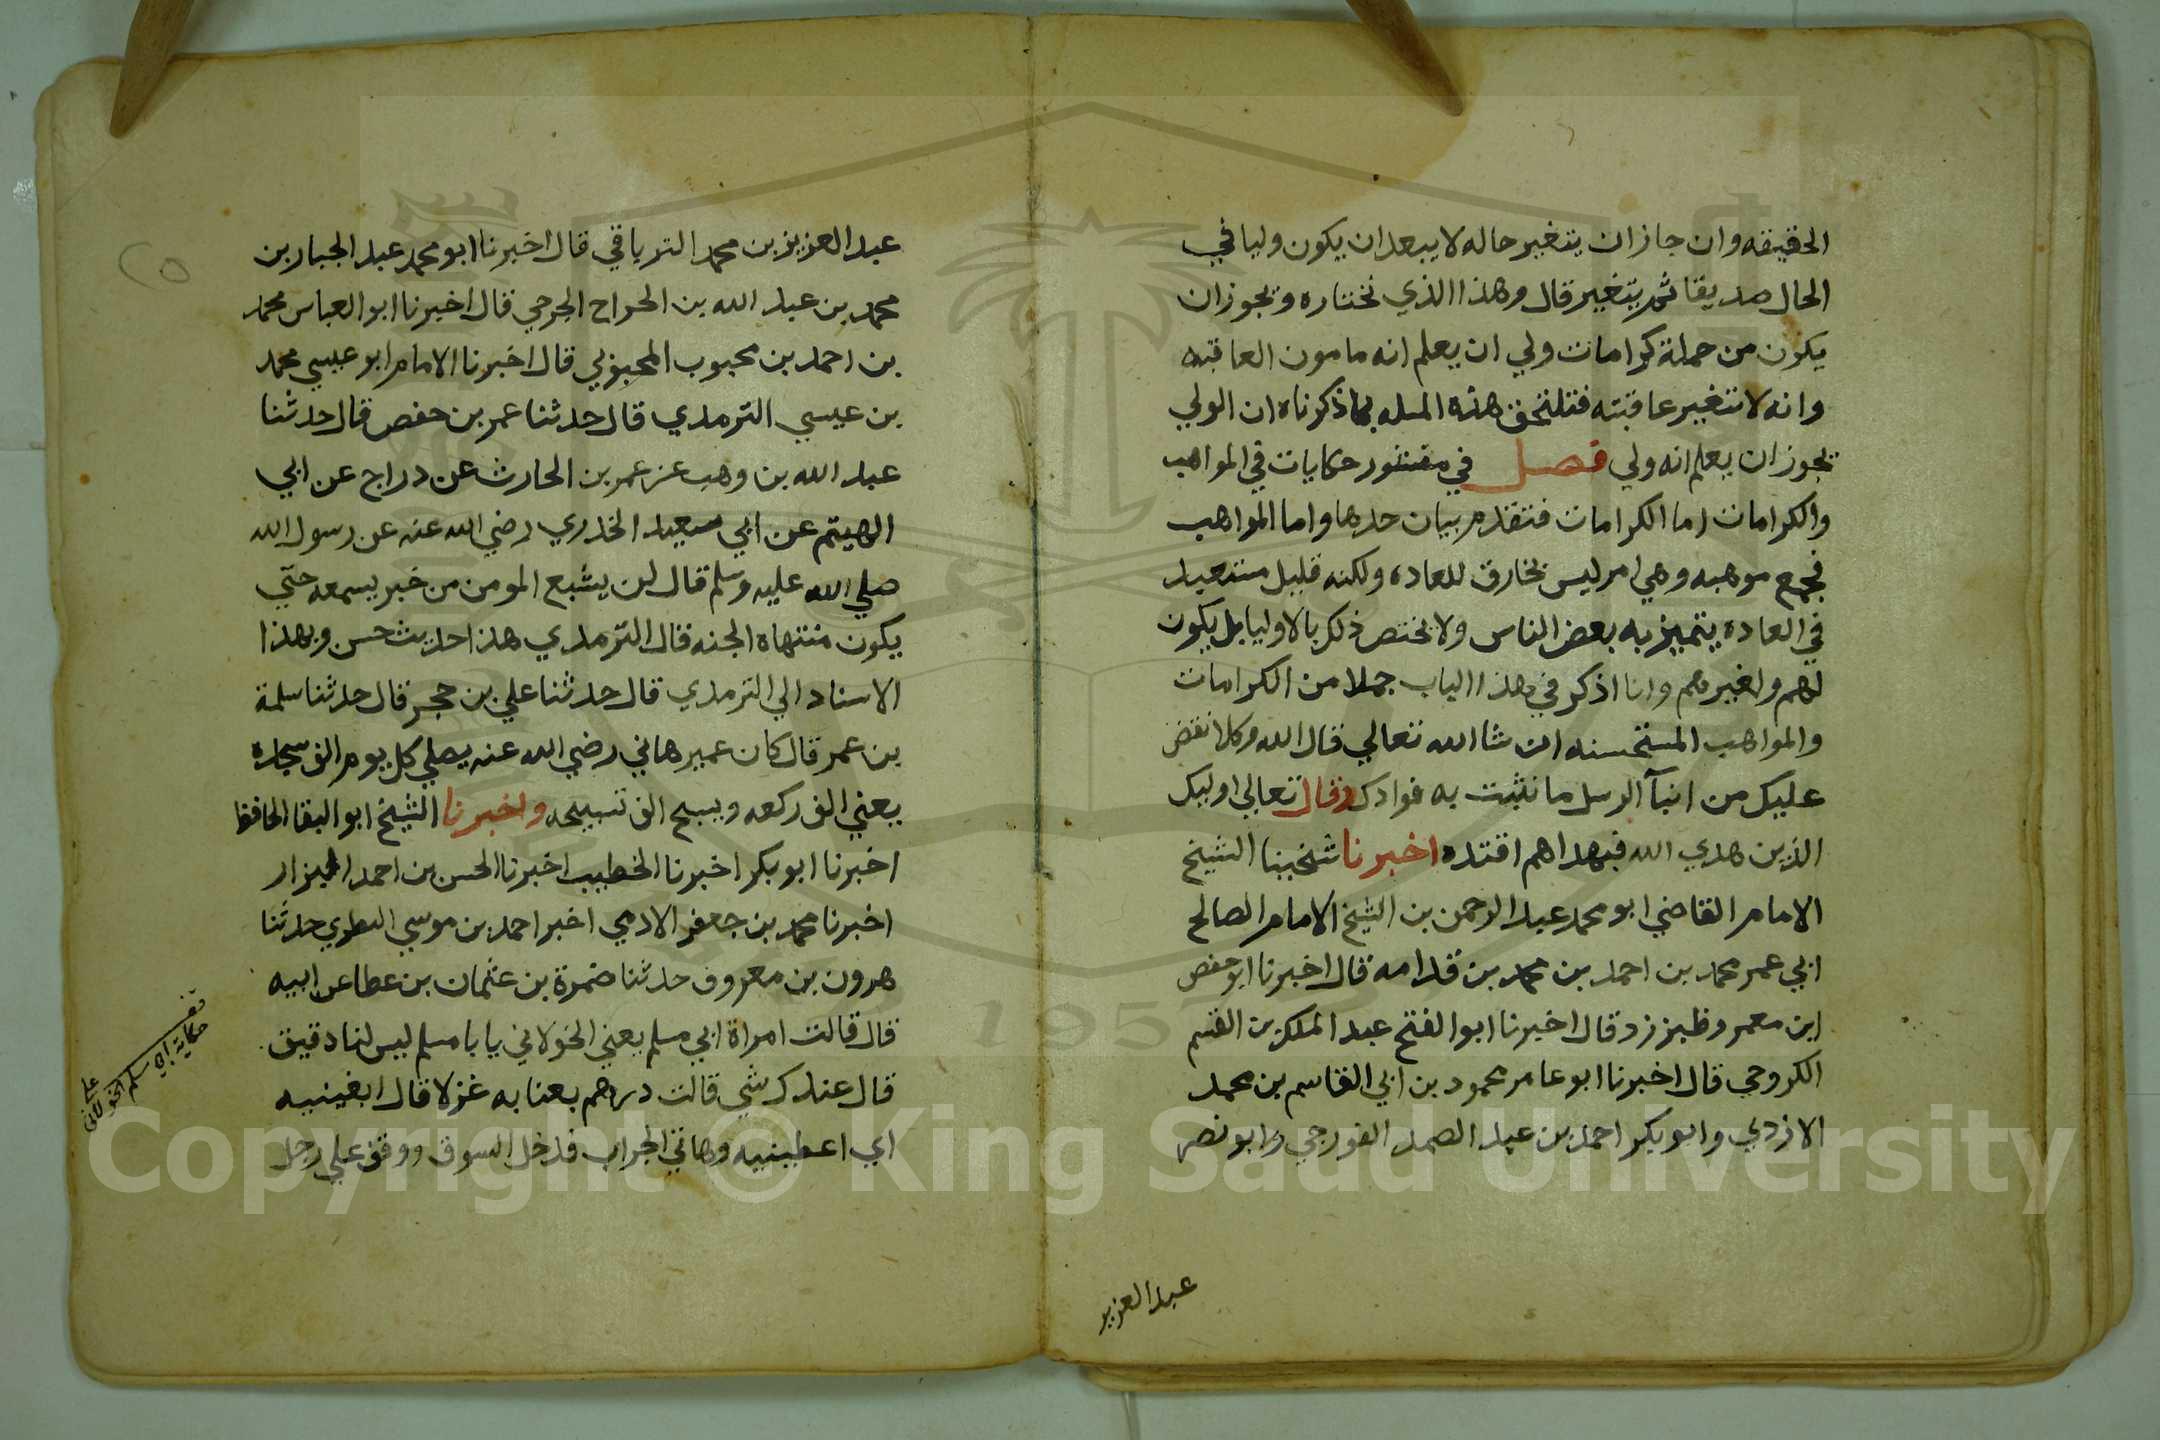 الحقيقه وان جاز ان يتغير حاله لا يبعد ان يكون وليا في
الحال صديقا ثم يتغير قال وهذا الذي نختاره ويجوز ان
يكون من جملة كرامات ولي ان يعلم انه مامون العاقبه
وانه لا تتغير عاقبته فتلتحق هذه المسله بما ذكرناه ان الولي
يجوز ان يعلم انه ولي فصل في منثور حكايات في المواهب
والكرامات اما الكرامات فتقدم بيان حدها واما المواهب
فجمع موهبه وهي امر ليس بخارق للعاده ولكنه قليل مستبعد
في العاده يتميز به بعض الناس ولا يختص ذلك بالاوليا بل يكون
لهم ولغيرهم وانا اذكر في هذا الباب جملا من الكرامات
والمواهب المستحسنه ان شا الله تعالي قال الله وكلا نقض
عليك من انبآ الرسل ما نثبت به فوادك وقال تعالي اوليك
الذين هدي الله فبهداهم اقتده اخبرنا شخينا الشيخ
الامام القاضي ابو محمد عبد الرحمن بن الشيخ الامام الصالح
ابي عمر محمد بن احمد بن محمد بن قدامه قال اخبرنا ابو حفص
ابن معمر وطبرزد قال اخبرنا ابو الفتح عبد الملك بن القسم
الكروجي قال اخبرنا ابو عامر محمود بن ابي القاسم بن محمد
الازدي وابو بكر احمد بن عبد الصمد الغورجي وابو نصر
عبد العزيز
عبد العزيز بن محمد الترياقي قال اخبرنا ابو محمد عبد الجبار بن
محمد بن عبد الله بن الجراح الجرجي قال اخبرنا ابو العباس محمد
بن احمد بن محبوب المحبوبي قال اخبرنا الامام ابو عيسي محمد
بن عيسي الترمدي قال حدثنا عمر بن حفص قال حدثنا
عبد الله بن وهب عن عمر بن الحارث عن دراج عن ابي
الهيتم عن ابي سعيد الخدري رضي الله عنه عن رسول الله
صلي الله عليه وسلم قال لن يشبع المومن من خبر يسمعه حتي
يكون منتهاه الجنه قال الترمدي هذا حديث حسن وبهذا
الاسناد الي الترمدي قال حدثنا علي بن حجر قال حدثنا سلمة
بن عمر قال كان عمير هاني رضي الله عنه يصلي كل يوم الف سجده
يعني الف ركعه ويسبح الف تسبيحه واخبرنا الشيخ ابو البقا الحافظ
اخبرنا ابو بكر اخبرنا الخطيب اخبرنا الحسن بن احمد البزار
اخبرنا محمد بن جعفر الادمي اخبر احمد بن موسي الطوي حدثنا
هرون بن معروف حدثنا ضمرة بن عثمان بن عطا عن ابيه
قال قالت امراة ابي مسلم يعني الخولاني يا با مسلم ليس لنا دقيق
قال عندك شي قالت درهم بعنا به غزلا قال ابغينيه
اي اعطينيه وهاتي الجراب فدخل السوق ووقف علي رجل
حكاية ابي مسلم الخولاني
٢٥
Copyright © King Saud University
1957